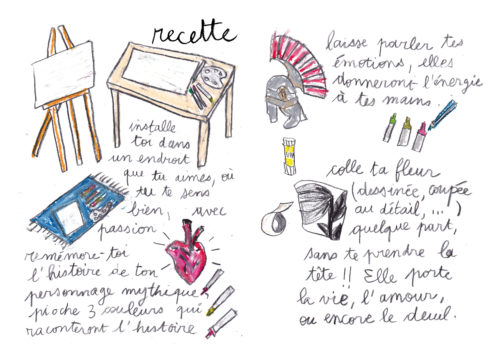 recette
installe
toi dans
un endroit
que tu aimes, où
tu te sens
bien, avec
passion
remémore-toi
l'histoire de ton
personnage mythique,
pioche 3 couleurs qui
raconteront l'histoire
laisse parler tes
émotions, elles
donneront l'énergie
à tes mains.
colle ta fleur
(dessinée, coupée
au détail, ...)
quelque part,
sans te prendre la
tête !! Elle porte
la vie, l'amour,
ou encore le deuil.